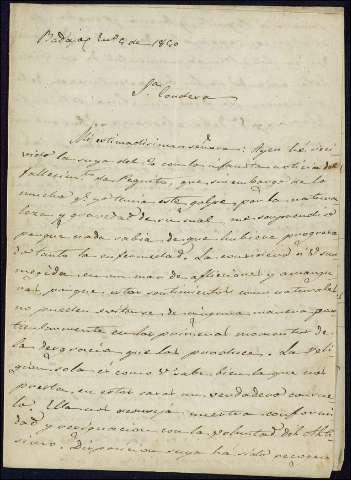 Badajoz En.º 4 de 1840
S.ra Condesa
Mi estimadisima señora: Ayer hé reci-
vido la suya del 2 con la infausta noticia del
fallecim.to de Paquita, que sin embargo de lo
mucho q.e yo temia este golpe, por la natura-
leza y gravedad de su mal me sorprendió
porque nada sabia de que hubiese progresa-
do tanto la enfermedad. La considero á V. su-
mergida en un mar de afliciones y amargu-
ras porque estos sentimientos como naturales
no pueden evitarse de ninguna manera, par-
ticularmente en los primeros momentos de
la desgracia que los produce. La reli-
gion sola es como V. sabe bien la que nos
presta en estos casos un verdadero consue-
lo. Ella nos aconseja nuestra conformi-
dad y resignacion con la voluntad del Alti-
simo. Disposicion suya ha sido recoger